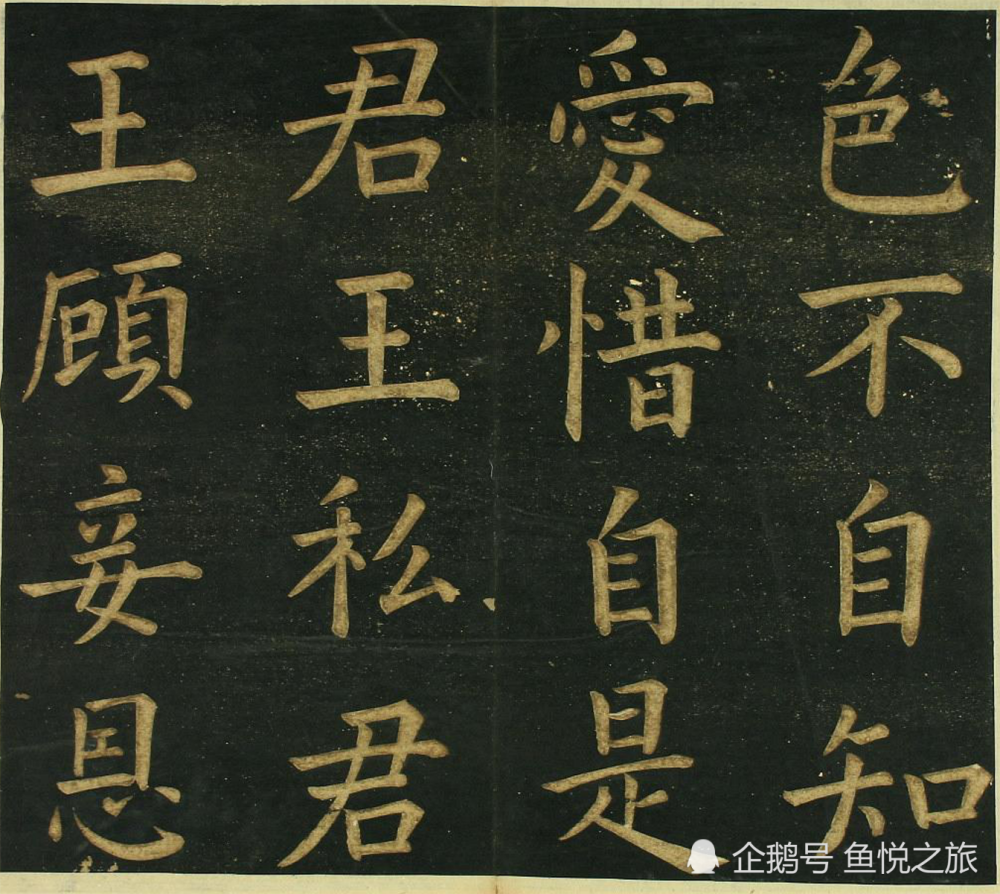 色不自知
愛惜自是
君王私君
王顧妾恩
企鹅号 鱼悦之旅